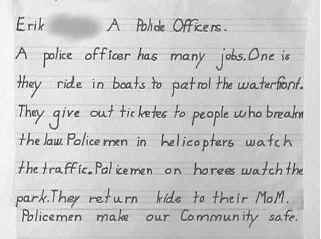 Erik A Polide Officers.
A police officer has many jobs. One is
they ride in boats to patrol the waterfront.
They give out ticketes to people who breahn
the law. Policemen in helicopters watch
the traffic. Policemen on horees watch the
park. They return kids to their MoM.
Policemen make our Community safe.